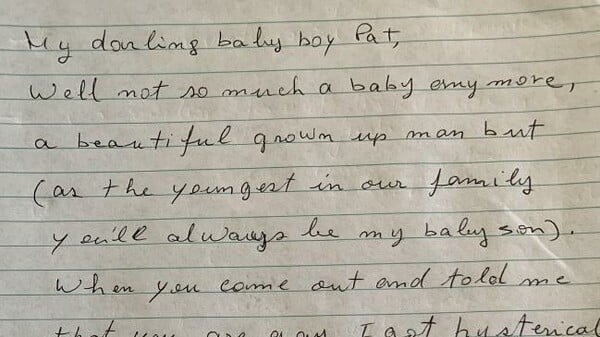 My darling baby boy Pat,
Well not so much a baby any more,
a beautiful grown up man but
(as the youngest in our family
you'll always be my baby son).
When you come out and told me
that you are gay I got hysterical